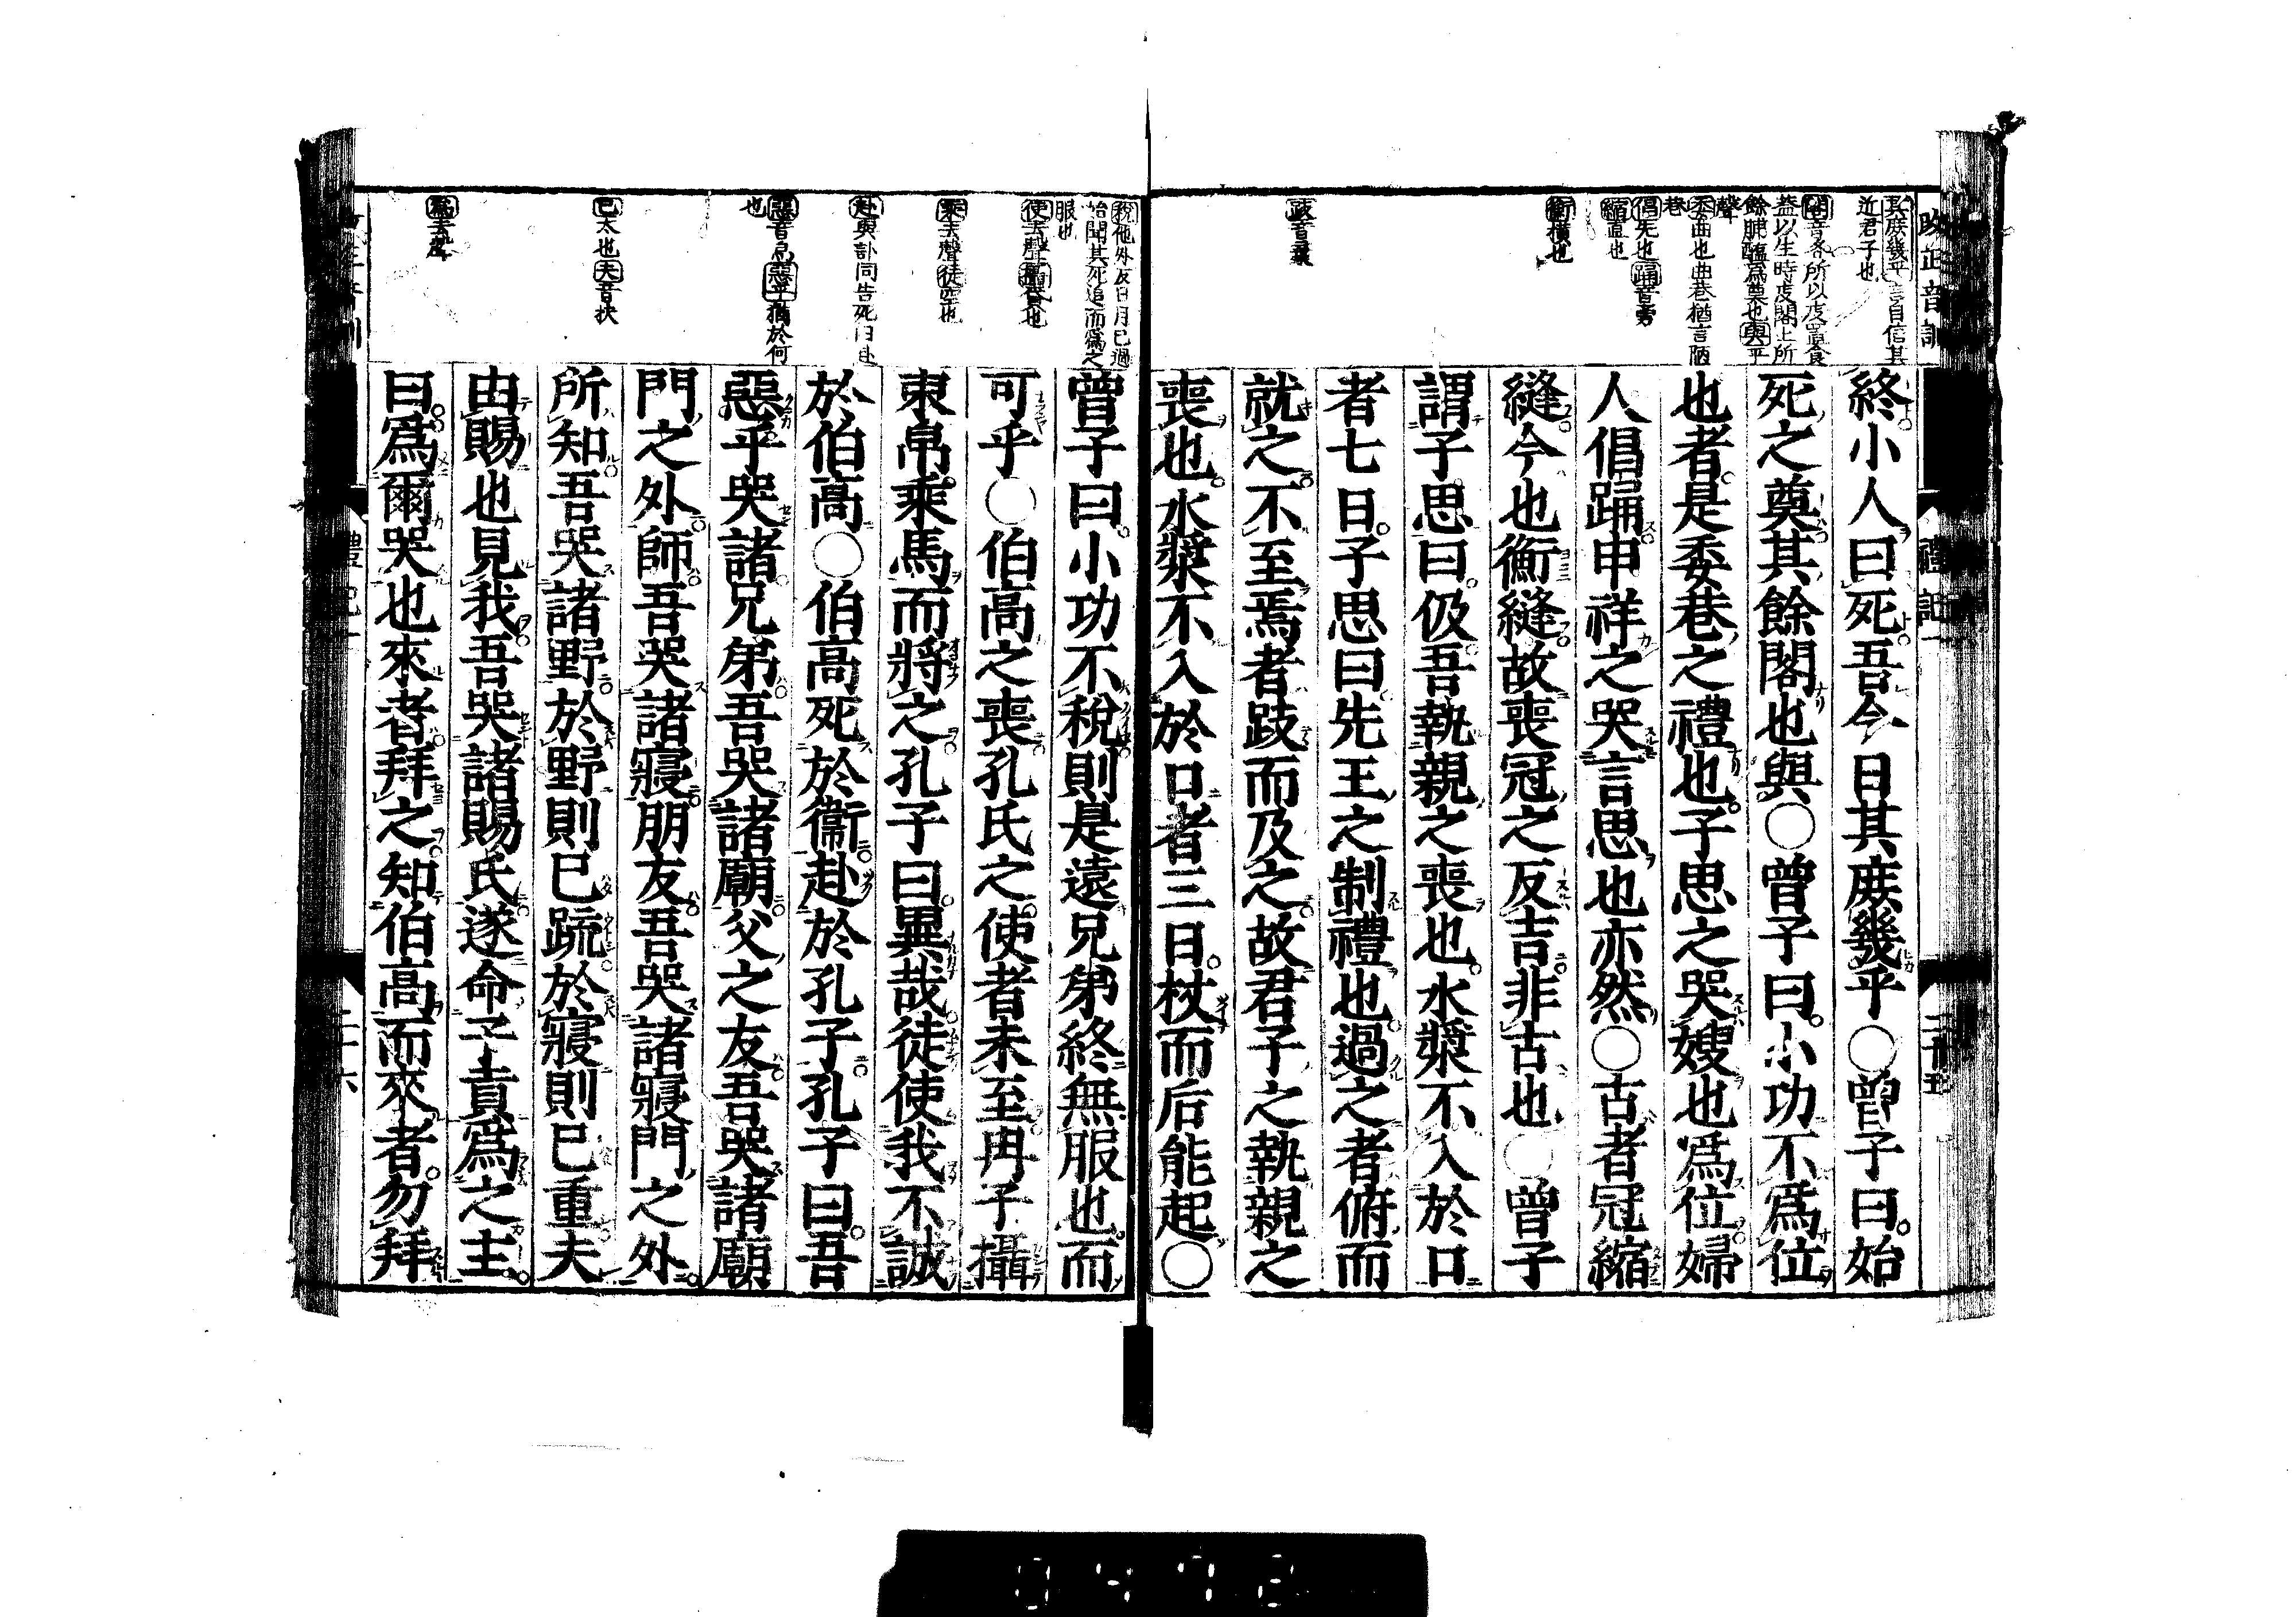 改正音訓
禮記一
其庶幾乎言自信其
近君子也
閣音各所以庋置食
蓋以生時庋閣上所
餘脯醢爲奠也與平
聲
委曲也曲巷猶言陋
巷
倡先也踊音勇
縮直也
衡橫也
跂音棄
終小人曰死吾今日其庶幾乎○曾子曰始
死之奠其餘閣也與○曾子曰小功不爲位
也者是委巷之禮也子思之哭嫂也爲位婦
人倡踊申祥之哭言思也亦然○古者冠縮
縫今也衡縫故喪冠之反吉非古也○曾子
謂子思曰伋吾執親之喪也水漿不入於口
者七日子思曰先王之制禮也過之者俯而
就之不至焉者跂而及之故君子之執親之
喪也水漿不入於口者三日杖而后能起○
稅他外反日月已過
始聞其死追而爲之
服也
使去聲攝貸也
乘去聲徒空也
赴與訃同告死曰赴
惡音烏惡乎猶於何
也
已太也夫音扶
爲去聲
曾子曰小功不稅則是遠兄弟終無服也而
可乎○伯高之喪孔氏之使者未至冉子攝
束帛乘馬而將之孔子曰異哉徒使我不誠
於伯高○伯高死於衞赴於孔子孔子曰吾
惡乎哭諸兄弟吾哭諸廟父之友吾哭諸廟
門之外師吾哭諸寢朋友吾哭諸寢門之外
所知吾哭諸野於野則已疏於寢則已重夫
由賜也見我吾哭諸賜氏遂命子貢爲之主
曰爲爾哭也來者拜之知伯高而來者勿拜
禮記一
二十六